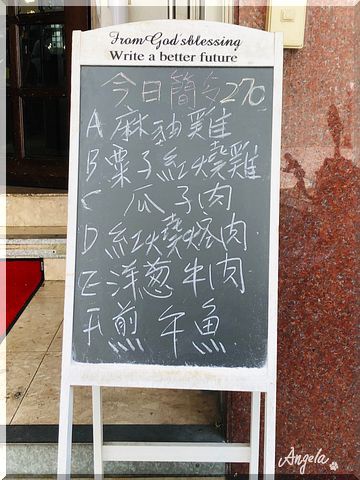 From God's blessing
Write a better future
今日簡歺270
A 麻油雞
B 栗子紅燒雞
C 瓜子肉
D 紅燒焢肉
E 洋葱牛肉
F 煎午魚
Angela